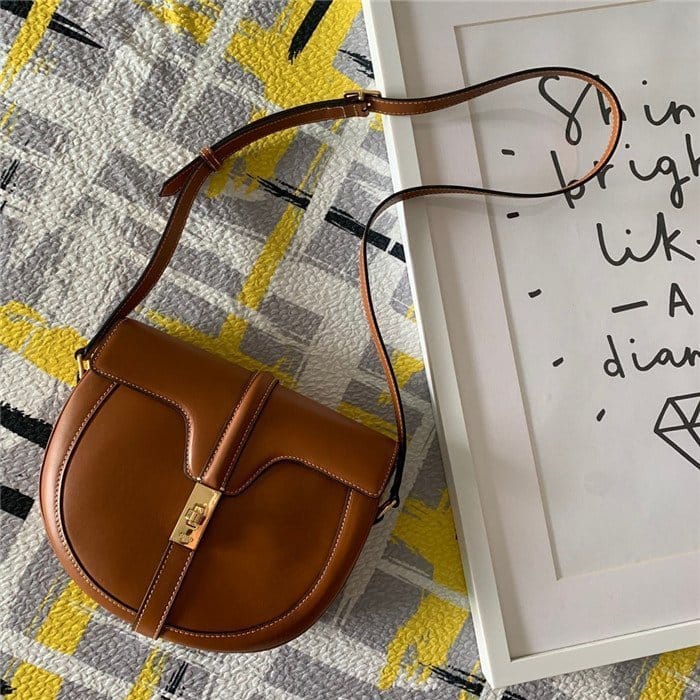 Shin
bright
like
– A
diam